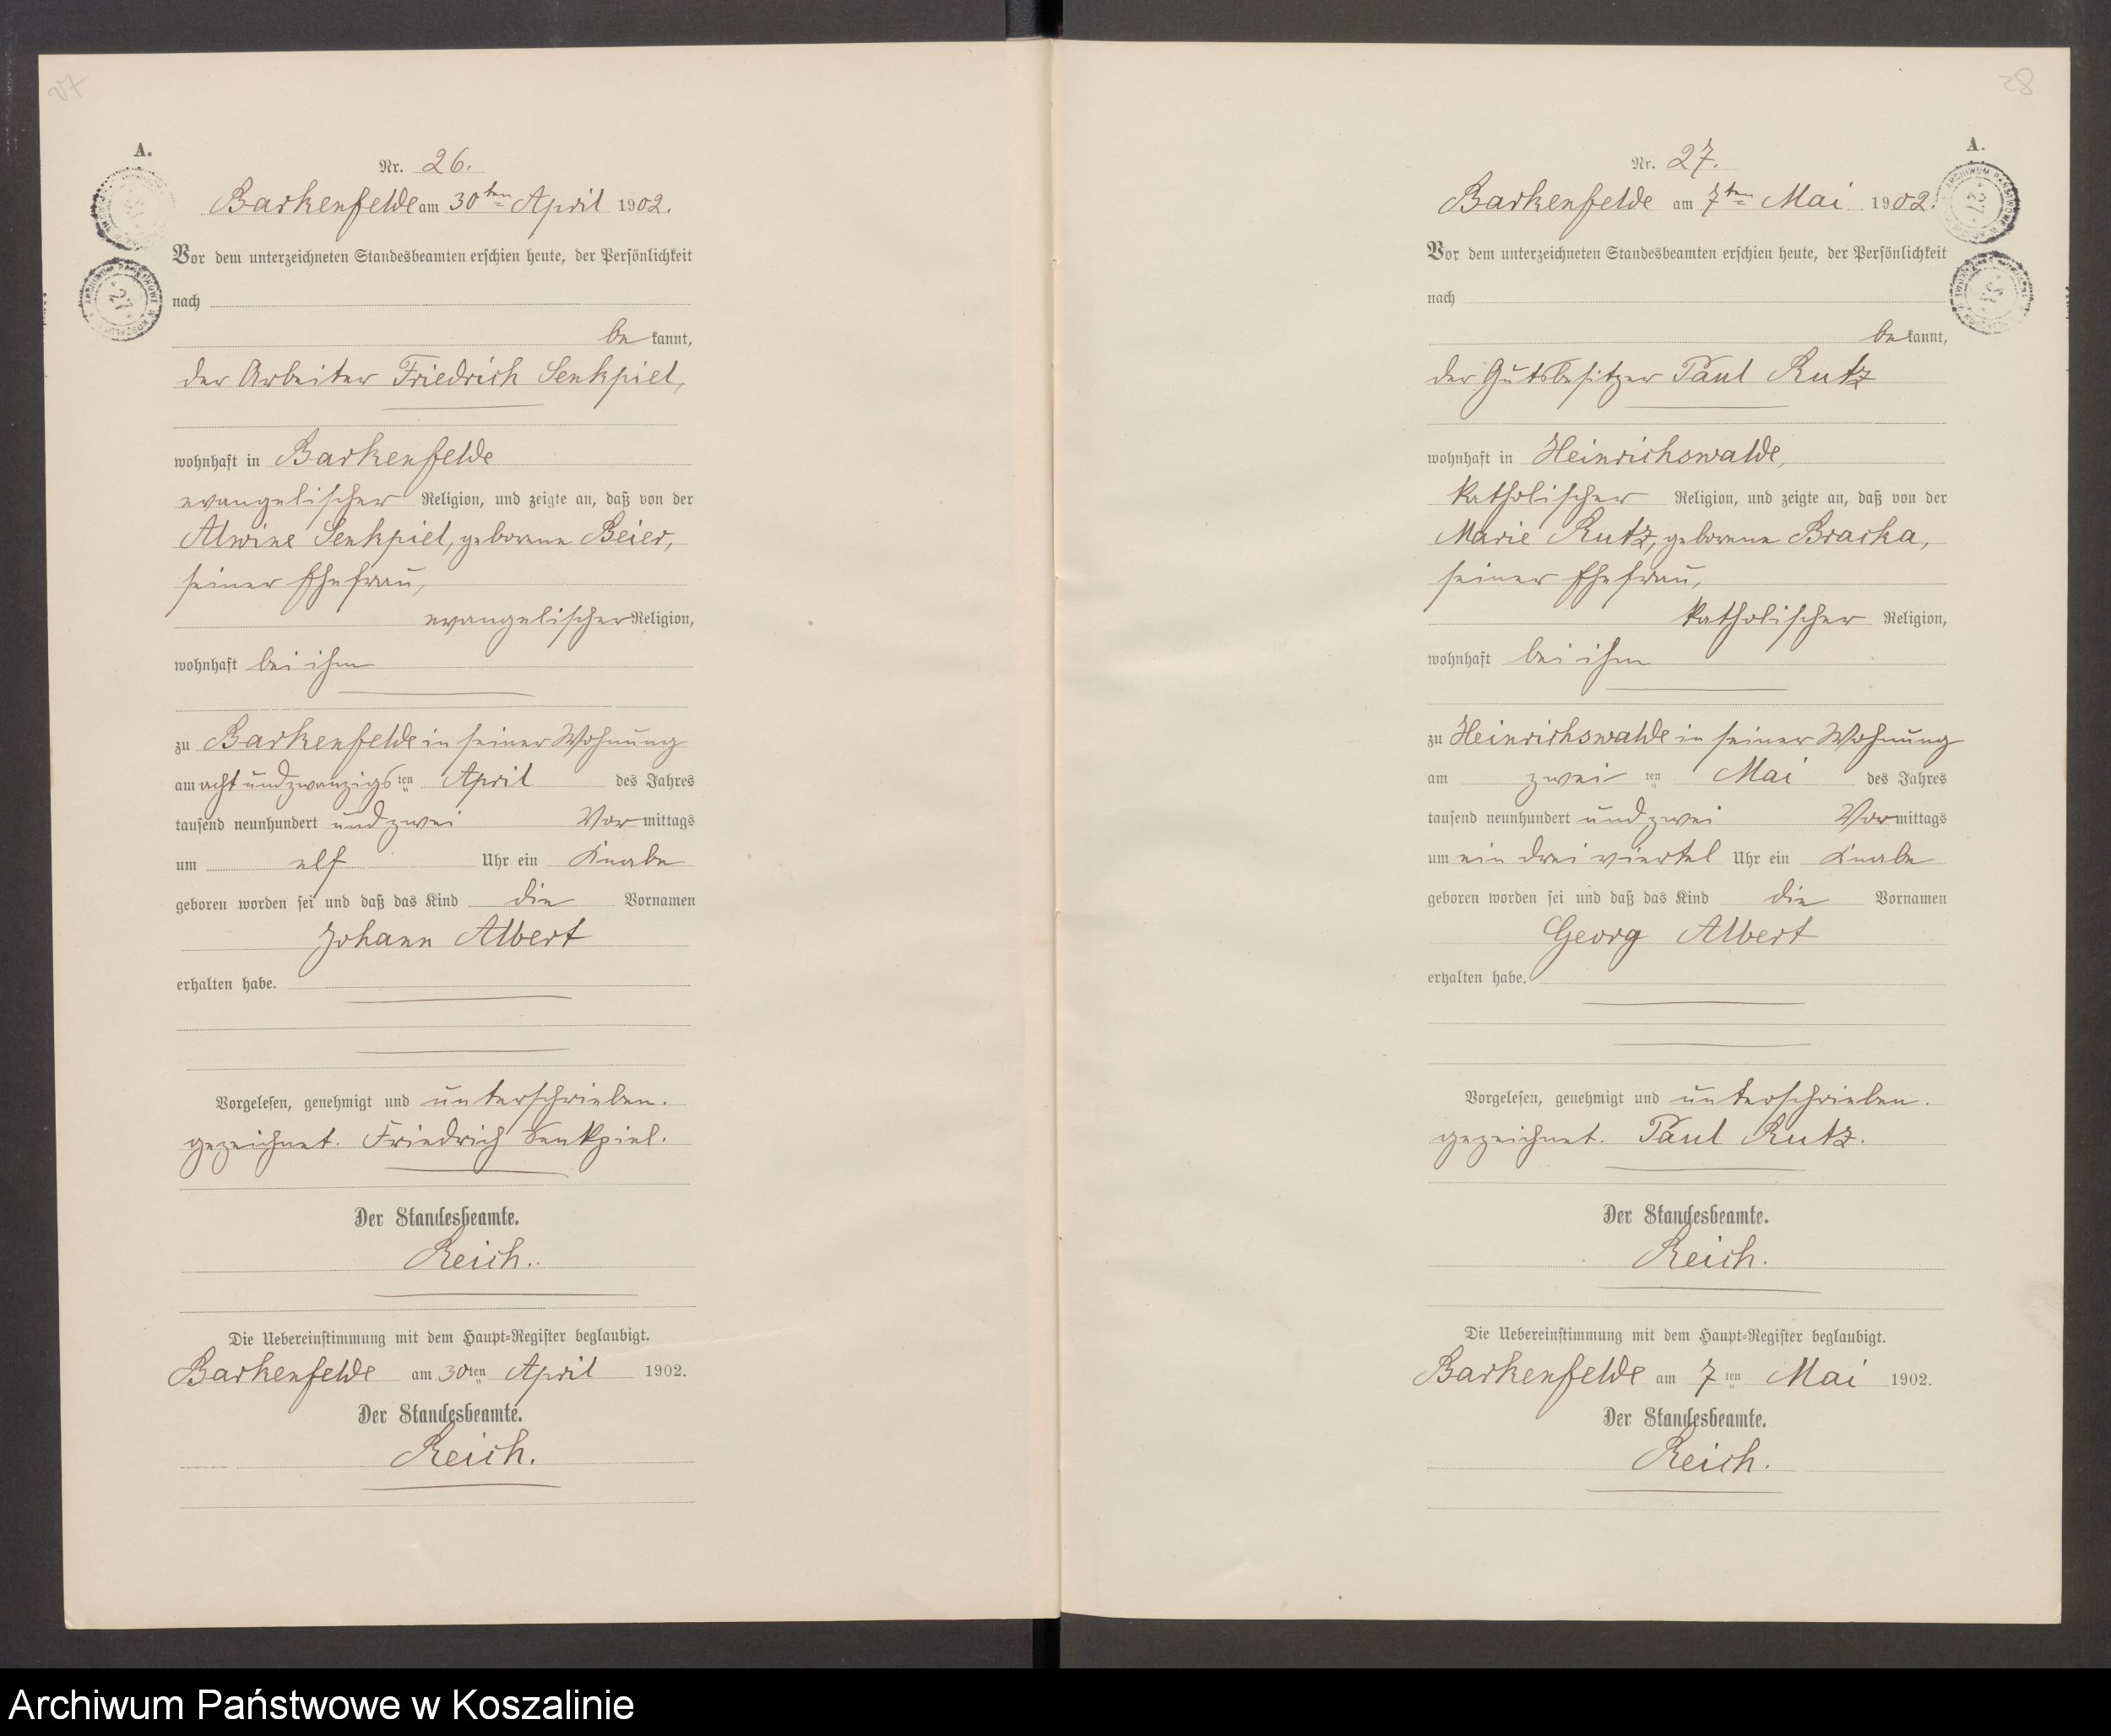 27
A.
Nr. 26.
Barkenfelde am 30ten April 1902.
Vor dem unterzeichneten Standesbeamten erschien heute, der Persönlichkeit
nach
be kannt,
der Arbeiter Friedrich Senkpiel,
wohnhaft in Barkenfelde
evangelischer Religion, und zeigte an, daß von der
Alwine Senkpiel, geborene Beier,
seiner Ehefrau,
evangelischer Religion,
wohnhaft bei ihm
zu Barkenfelde in seiner Wohnung
am acht und zwanzigsten April des Jahres
tausend neunhundert und zwei Vormittags
um elf Uhr ein Knabe
geboren worden sei und daß das Kind die Vornamen
Johann Albert
erhalten habe.
Vorgelesen, genehmigt und unterschrieben.
gezeichnet. Friedrich Senkpiel.
Der Standesbeamte.
Reich.
Die Uebereinstimmung mit dem Haupt-Register beglaubigt.
Barkenfelde am 30ten April 1902.
Der Standesbeamte.
Reich.
28
A.
Nr. 27.
Barkenfelde am 7ten Mai 1902.
Vor dem unterzeichneten Standesbeamten erschien heute, der Persönlichkeit
nach
be kannt,
der Gutsbesitzer Paul Rutz
wohnhaft in Heinrichswalde,
katholischer Religion, und zeigte an, daß von der
Marie Rutz, geborene Bracka,
seiner Ehefrau,
katholischer Religion,
wohnhaft bei ihm
zu Heinrichswalde in seiner Wohnung
am zweiten Mai des Jahres
tausend neunhundert und zwei Vormittags
um ein drei viertel Uhr ein Knabe
geboren worden sei und daß das Kind die Vornamen
Georg Albert
erhalten habe.
Vorgelesen, genehmigt und unterschrieben.
gezeichnet. Paul Rutz.
Der Standesbeamte.
Reich.
Die Uebereinstimmung mit dem Haupt-Register beglaubigt.
Barkenfelde am 7ten Mai 1902.
Der Standesbeamte.
Reich.
Archiwum Państwowe w Koszalinie